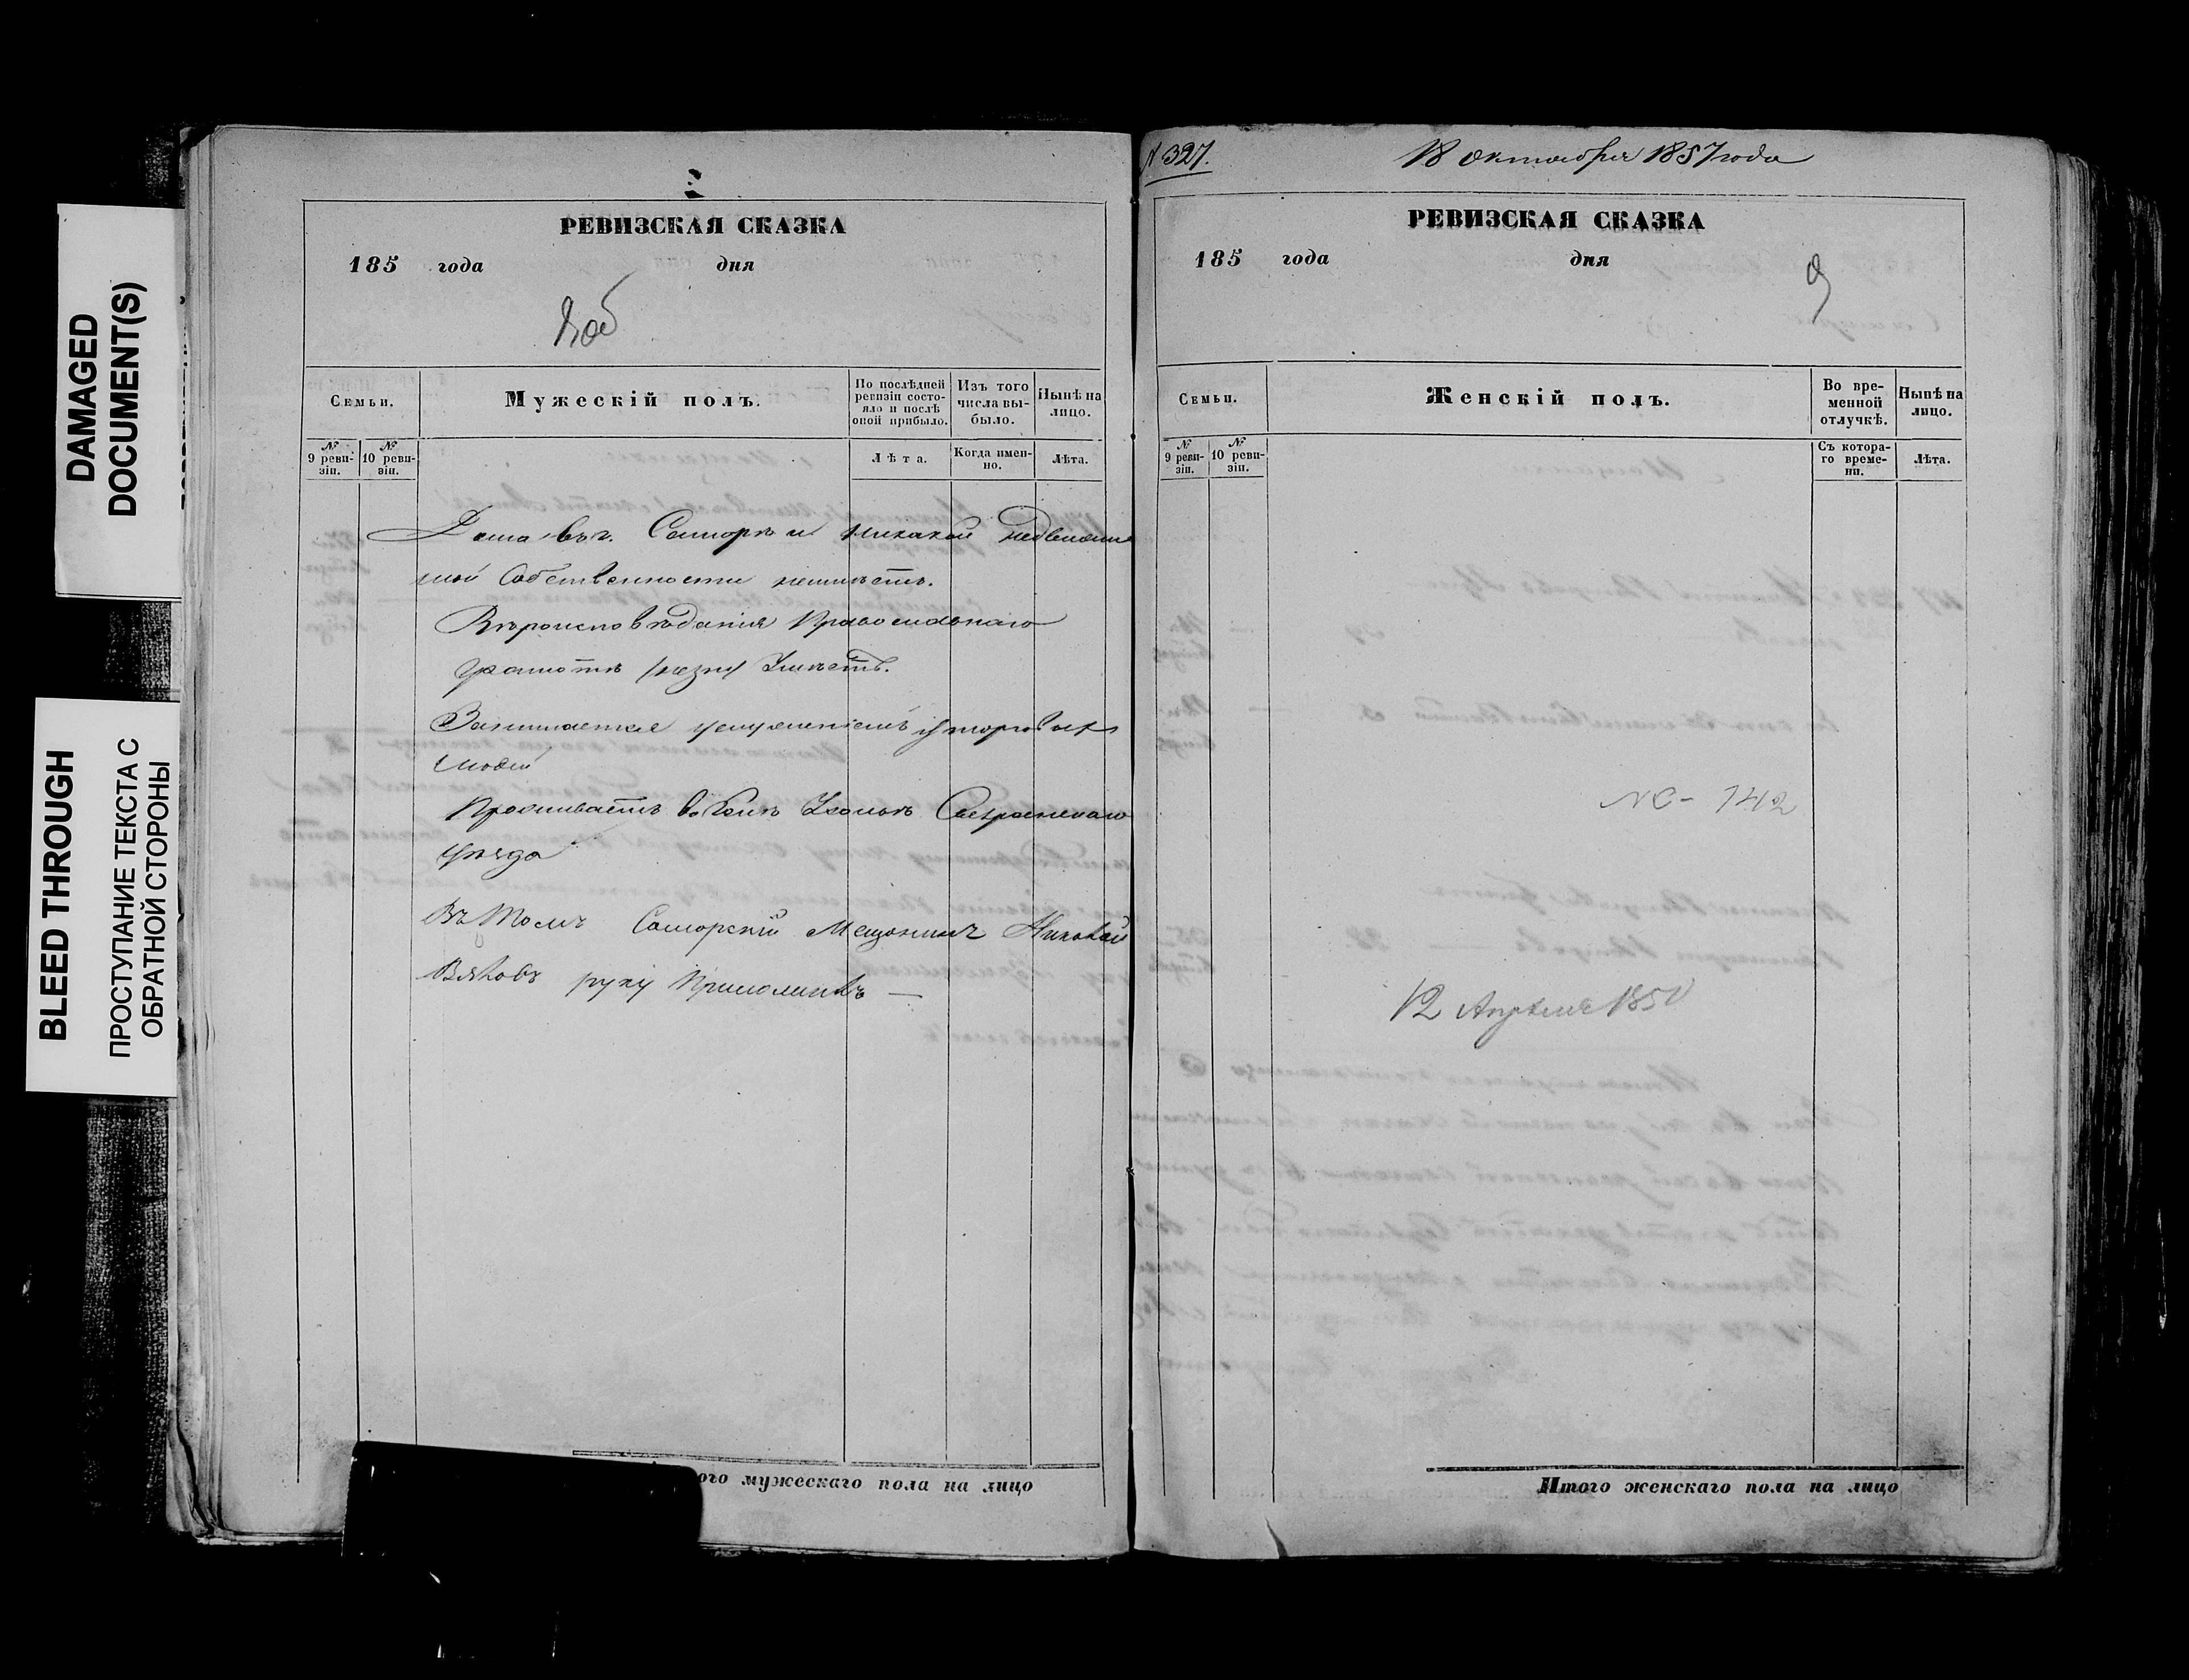 DAMAGED
DOCUMENT(S)
BLEED THROUGH
ПРОСТУПАНИЕ ТЕКСТА С
ОБРАТНОЙ СТОРОНЫ
РЕВИЗСКАЯ СКАЗКА
185 года дня
Семьи.
Мужескій полъ.
По послѣдней
ревизіи состо-
яло и послѣ
оной прибыло.
Изъ того
числа вы-
было.
Нынѣ на
лицо.
№
9 реви-
зіи.
№
10 реви-
зіи.
Лѣта.
Когда имен-
но.
Лѣта.
Дома въ г. Самарѣ и никакой недвижи
мой Собственности неимѣетъ.
Вѣроисповѣданія Православнаго
грамотѣ незнаетъ
Занимается услуженіемъ у торговыхъ
людей
Проживаетъ въ Сызранскаго
уѣзда
Въ томъ Самарскій Мещанинъ Николай
руку Приложилъ —
ого мужескаго пола на лицо
N 327.
18 октября 1857 года
РЕВИЗСКАЯ СКАЗКА
185 года дня
9
Семьи.
Женскій полъ.
Во вре-
менной
отлучкѣ.
Нынѣ на
лицо.
№
9 реви-
зіи.
№
10 реви-
зіи.
Съ котора-
го време-
ни.
Лѣта.
142
12 Апрѣля
Итого женскаго пола на лицо